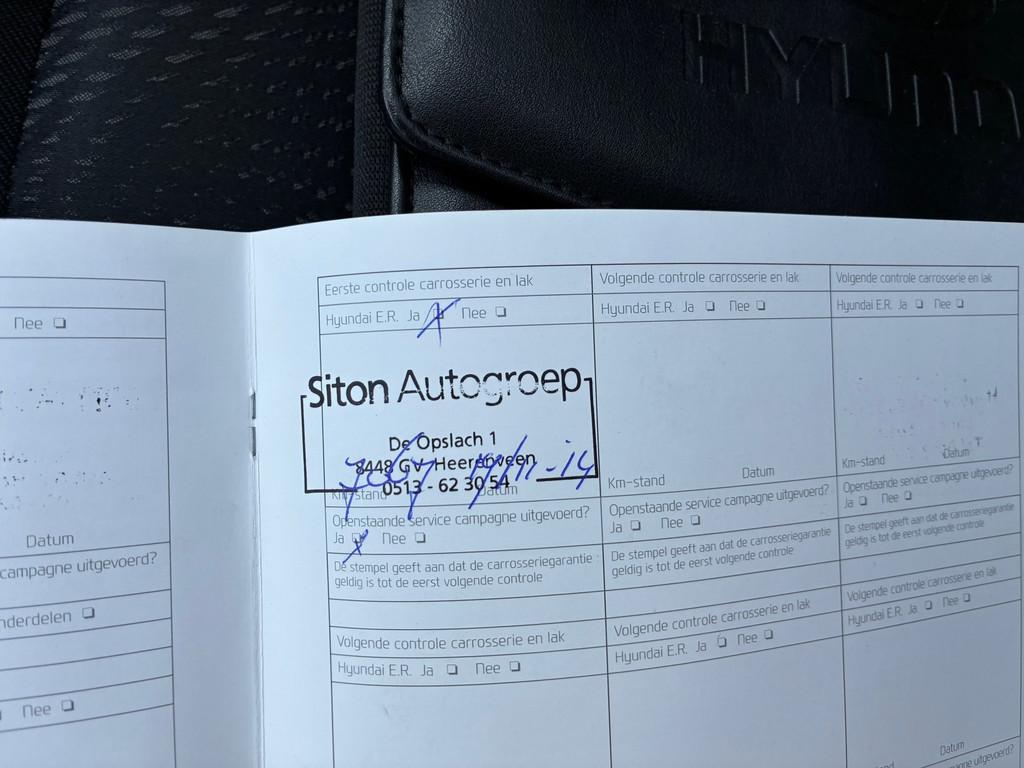 HYUN
Nee ❏
Datum
campagne uitgevoerd?
nderdelen ❏
Nee ❏
Eerste controle carrosserie en lak
Hyundai E.R. Ja ❏ Nee ❏
Siton Autogroep
De Opslach 1
8448 GV Heerenveen
0513 - 62 30 54
Km-stand Datum
Openstaande service campagne uitgevoerd?
Ja ❏ Nee ❏
De stempel geeft aan dat de carrosseriegarantie
geldig is tot de eerst volgende controle
Volgende controle carrosserie en lak
Hyundai E.R. Ja ❏ Nee ❏
Volgende controle carrosserie en lak
Hyundai E.R. Ja ❏ Nee ❏
Km-stand Datum
Openstaande service campagne uitgevoerd?
Ja ❏ Nee ❏
De stempel geeft aan dat de carrosseriegarantie
geldig is tot de eerst volgende controle
Volgende controle carrosserie en lak
Hyundai E.R. Ja ❏ Nee ❏
Volgende controle carrosserie en lak
Hyundai E.R. Ja ❏ Nee ❏
Km-stand Datum
Openstaande service campagne uitgevoerd?
Ja ❏ Nee ❏
De stempel geeft aan dat de carrosseriegarantie
geldig is tot de eerst volgende controle
Volgende controle carrosserie en lak
Hyundai E.R. Ja ❏ Nee ❏
Datum